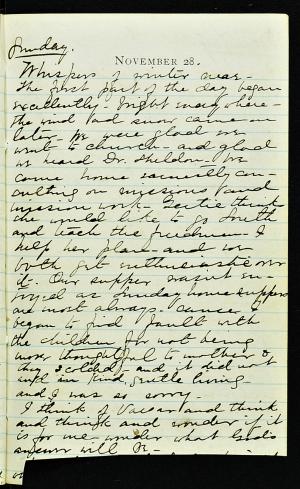 Sunday.
NOVEMBER 28.
Whispers of winter near.
The first part of the day began
excellently - bright everywhere -
the wind and snow came on
later. We were glad we
went to church - and glad
we heard Dr. Sheldon - We
came home earnestly con-
sulting on missions and
mission work - Gertie thinks
she would like to go South
and teach the freedmen - I
help her plan - and we
both get enthusiastic over
it. Our supper wasn't en-
joyed as Sunday home suppers
are most always - cause I
began to find fault with
the children for not being
more thoughtful to mother &
they &
and it did not
end in kind, gentle living
and I was so sorry.
I think of Vassar and think
and think and wonder if it
is for me - wonder what God's
answer will be -